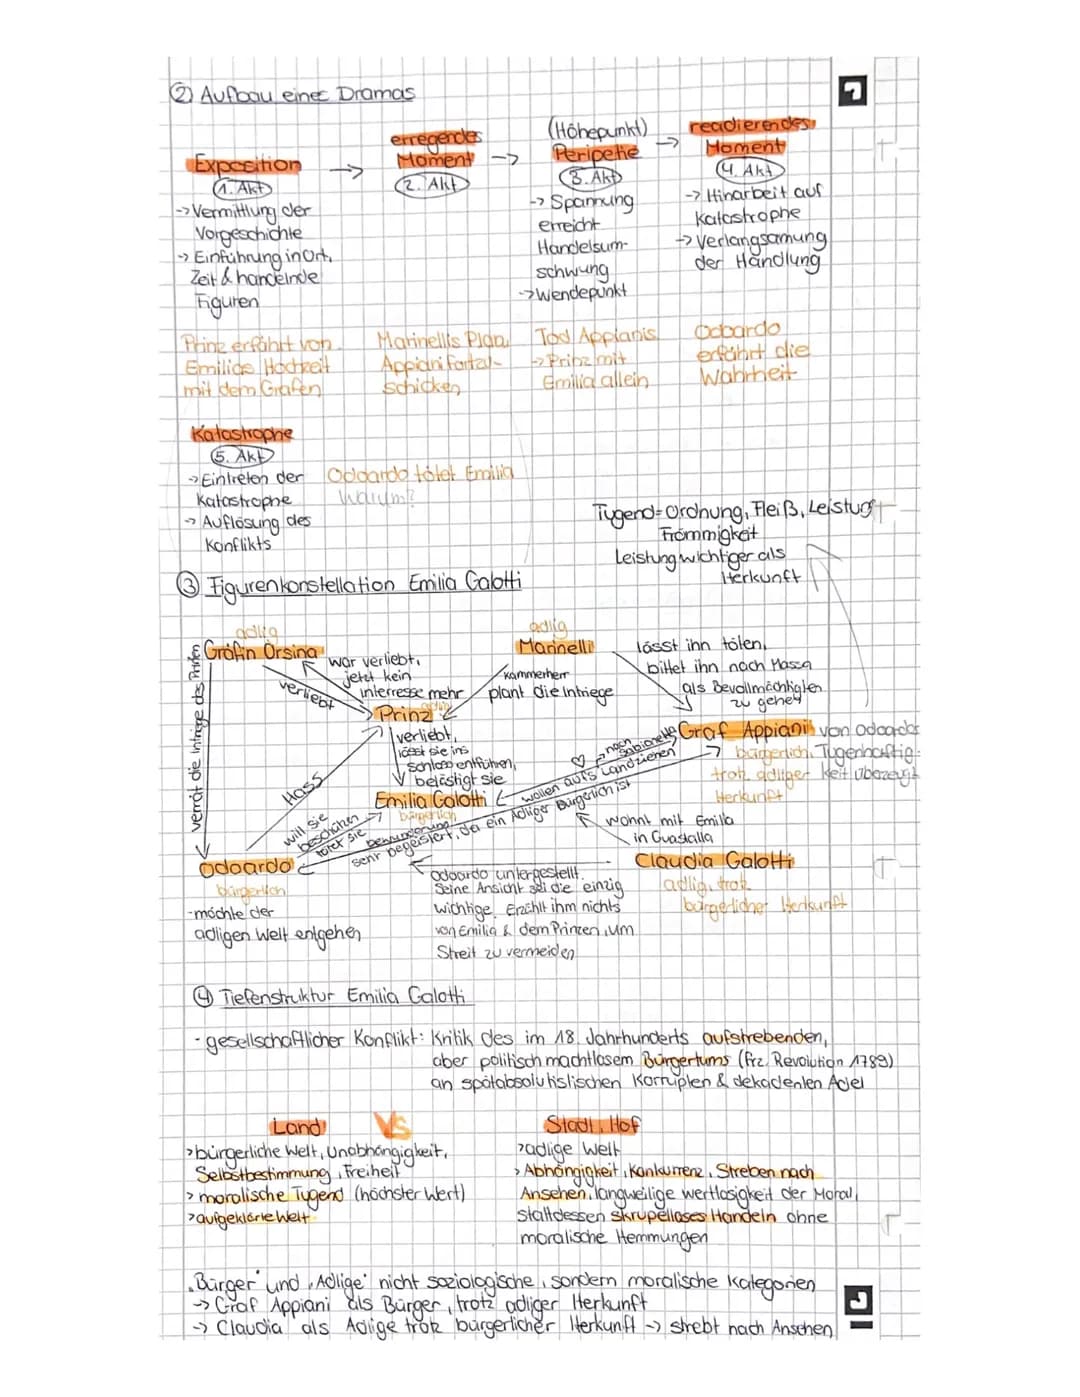 ② Aufbau eines Dramas
Exposition
1. Akt
-> Vermittlung der
Vorgeschichte
-> Einführung in Ort,
Zeit & handelnde
Figuren
->
erregendes
Moment
2. Akt
->
(Höhepunkt)
Peripetie
3. Akt
-> Spannung
erreicht
Handelsum-
schwung
-> Wendepunkt
->
readierendes
Moment
4. Akt
-> Hinarbeit auf
Katastrophe
-> Verlangsamung
der Handlung
Prinz erfährt von
Emilias Hochzeit
mit dem Grafen
Marinellis Plan,
Appiani fortzu-
schicken
Tod Appianis
-> Prinz mit
Emilia allein
Odoardo
erfährt die
Wahrheit
Katastrophe
5. Akt
-> Eintreten der
Katastrophe
-> Auflösung des
Konflikts
Odoardo tötet Emilia
Warum?
Tugend = Ordnung, Fleiß, Leistung
Frömmigkeit
Leistung wichtiger als
Herkunft
③ Figurenkonstellation Emilia Galotti
adlig
Gräfin Orsina
verrät die Intrige des Prinzen
war verliebt,
jetzt kein
interresse mehr
verliebt
adlig
Marinelli
Kammerherr
plant die Intriege
lässt ihn töten,
bittet ihn nach Massa
als Bevollmächtigten
zu gehen
Prinz adlig
verliebt,
lässt sie ins
schloss entführen,
belästigt sie
Hass
Emilia Galotti
bürgerlich
wollen aufs Land ziehen
-> nach Sabionetta
Graf Appiani
bürgerlich,
trotz adliger
Herkunft
von Odoardos
Tugenhaftig-
keit überzeugt
will sie
beschützen
tötet sie
bewunderung
sehr begeistert, da ein Adliger Bürgerlich ist
wohnt mit Emilia
in Guastalla
Odoardo
bürgerlich
- möchte der
adligen Welt entgehen
Claudia Galotti
adlig, trotz
bürgerlicher Herkunft
Odoardo untergestellt.
Seine Ansicht sei die einzig
wichtige. Erzählt ihm nichts
von Emilia & dem Prinzen, um
Streit zu vermeiden
④ Tiefenstruktur Emilia Galotti
- gesellschaftlicher Konflikt: Kritik des im 18. Jahrhunderts aufstrebenden,
aber politisch machtlosem Bürgertums (frz. Revolution 1789)
an spätabsolutistischen Korrupten & dekadenten Adel
Land
VS
Stadt, Hof
> bürgerliche Welt, Unabhängigkeit,
Selbstbestimmung, Freiheit
> moralische Tugend (höchster Wert)
> aufgeklärte Welt
> adlige Welt
> Abhängigkeit, Konkurrenz, Streben nach
Ansehen, langweilige wertlosigkeit der Moral,
stattdessen skrupelloses Handeln ohne
moralische Hemmungen
„Bürger“ und „Adlige“ nicht soziologische, sondern moralische Kategorien
-> Graf Appiani als Bürger, trotz adliger Herkunft
-> Claudia als Adlige trotz bürgerlicher Herkunft -> strebt nach Ansehen